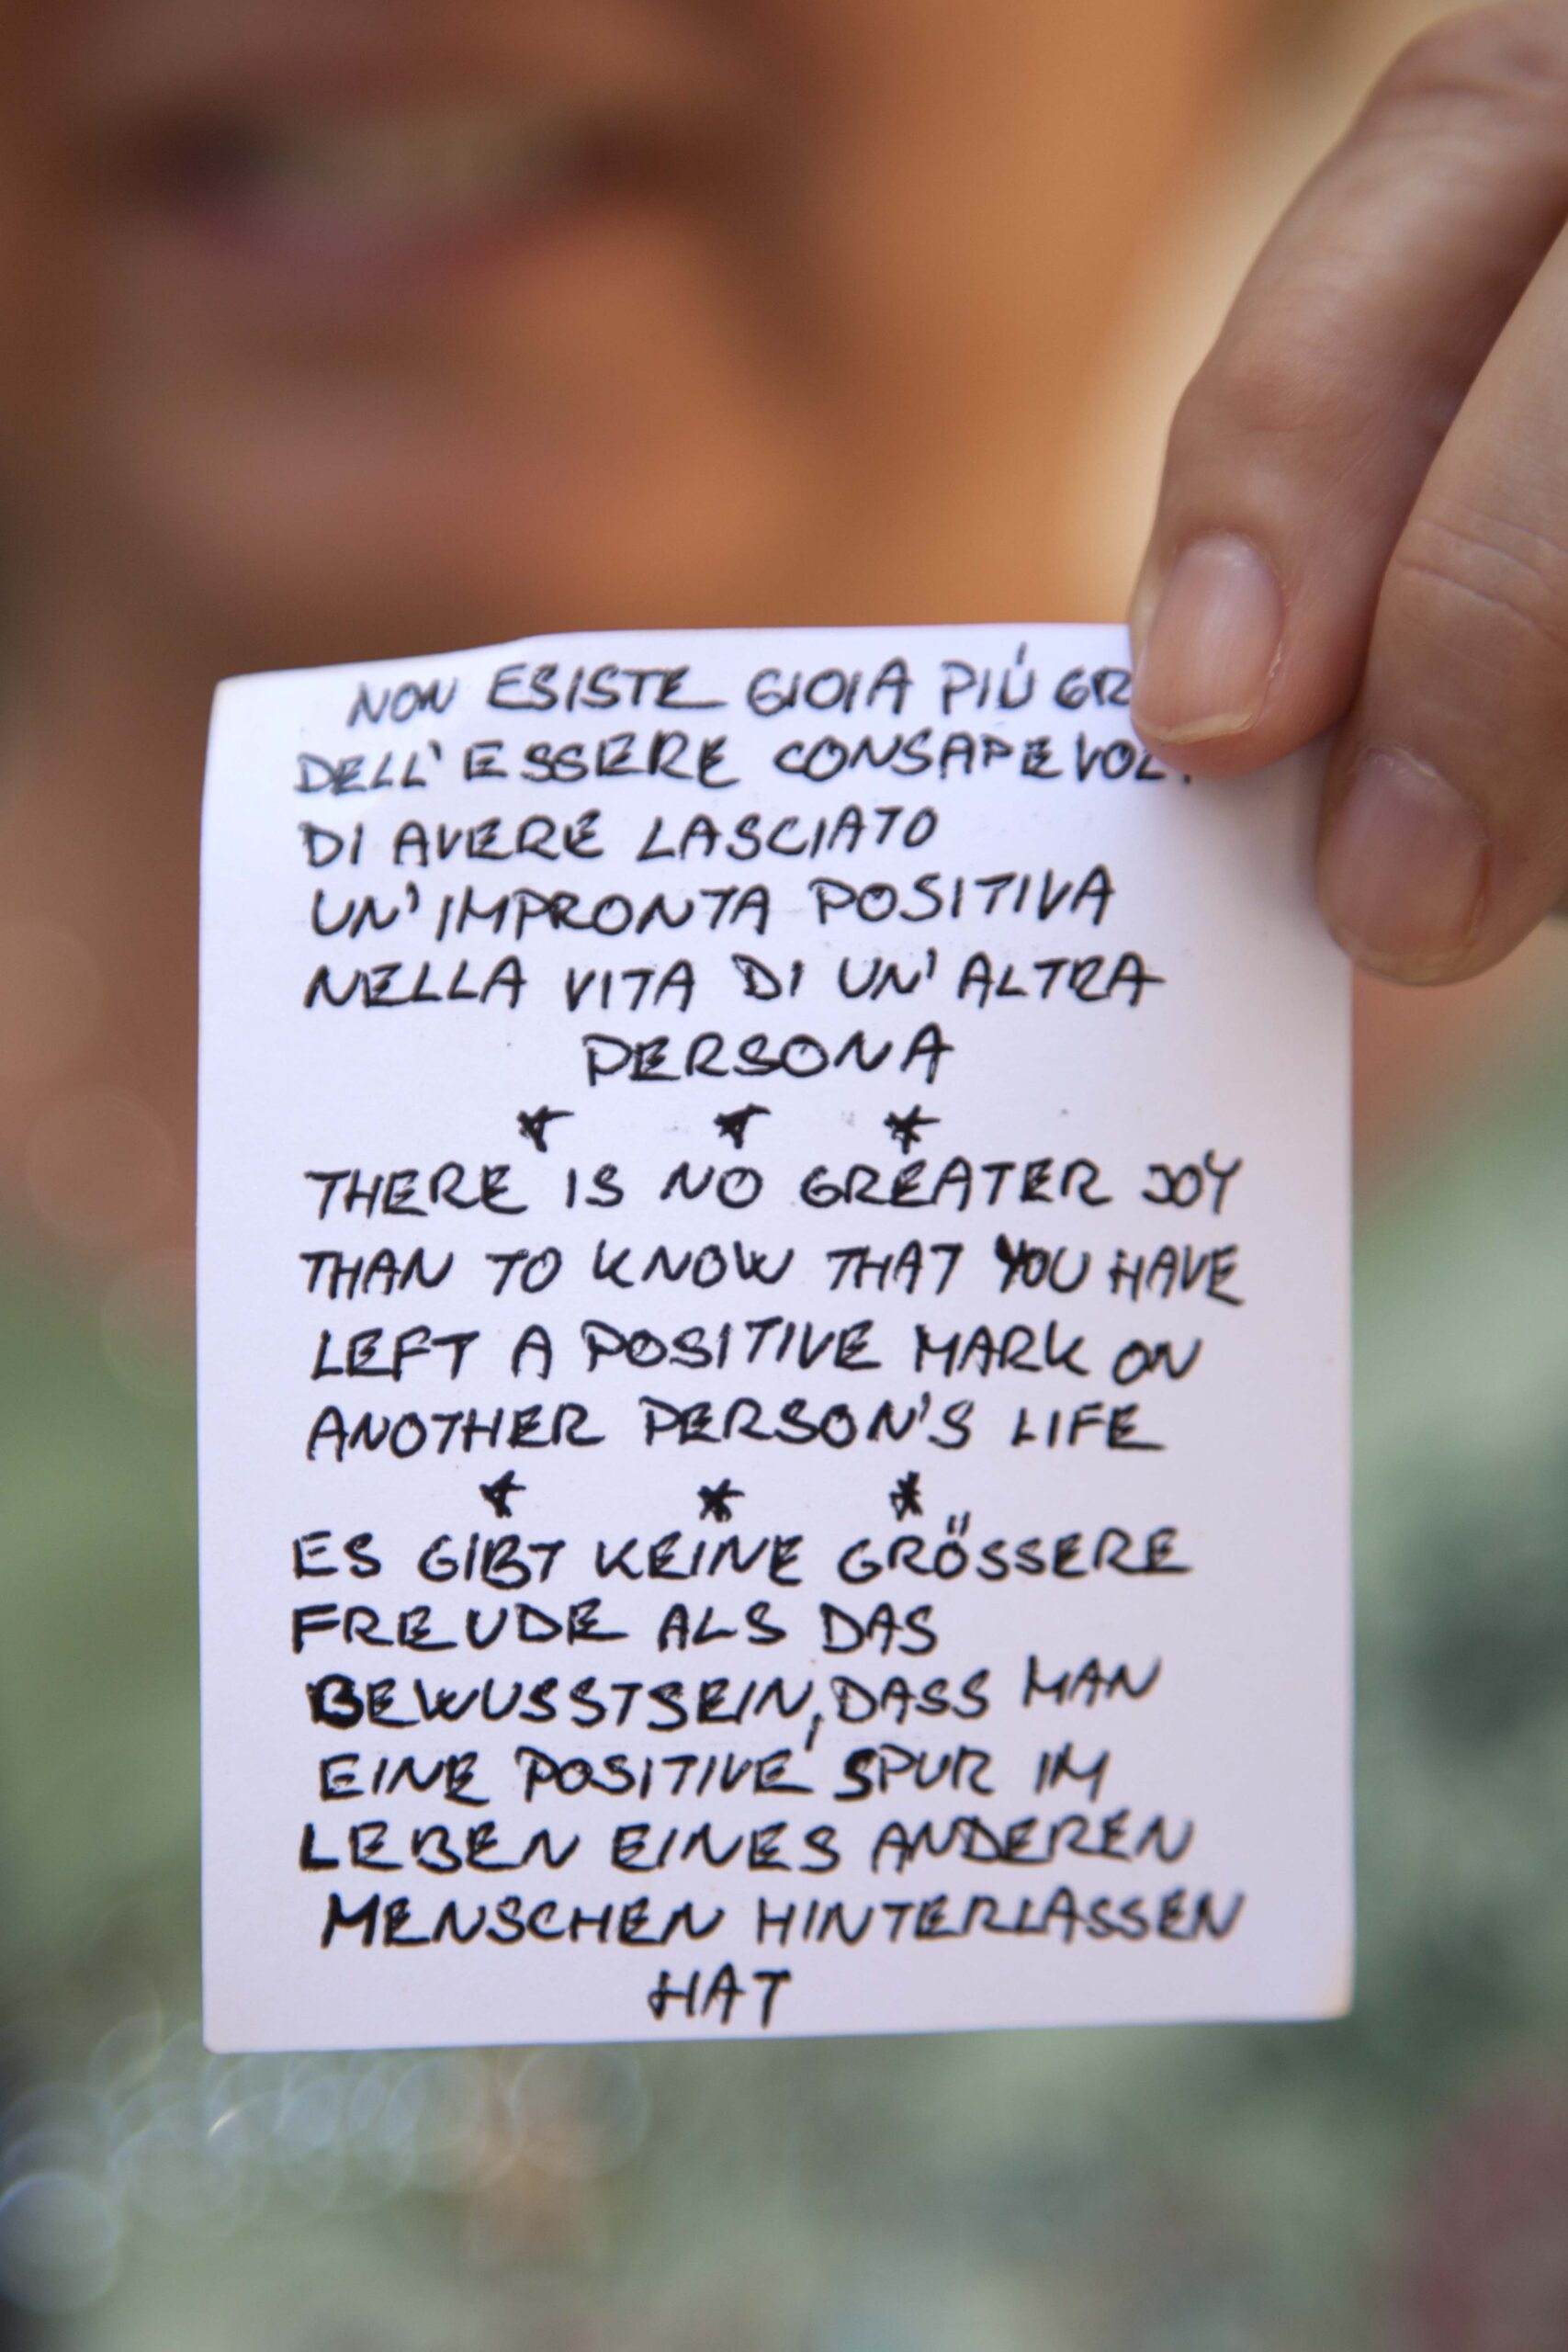 NON ESISTE GIOIA PIÚ
DELL'ESSERE
DI AVERE LASCIATO
UN'IMPRONTA POSITIVA
NELLA VITA DI UN'ALTRA
PERSONA
* * *
THERE IS NO GREATER JOY
THAN TO KNOW THAT YOU HAVE
LEFT A POSITIVE MARK ON
ANOTHER PERSON'S LIFE
* * *
ES GIBT KEINE GRÖSSERE
FREUDE ALS DAS
BEWUSSTSEIN, DASS MAN
EINE POSITIVE SPUR IM
LEBEN EINES ANDEREN
MENSCHEN HINTERLASSEN
HAT